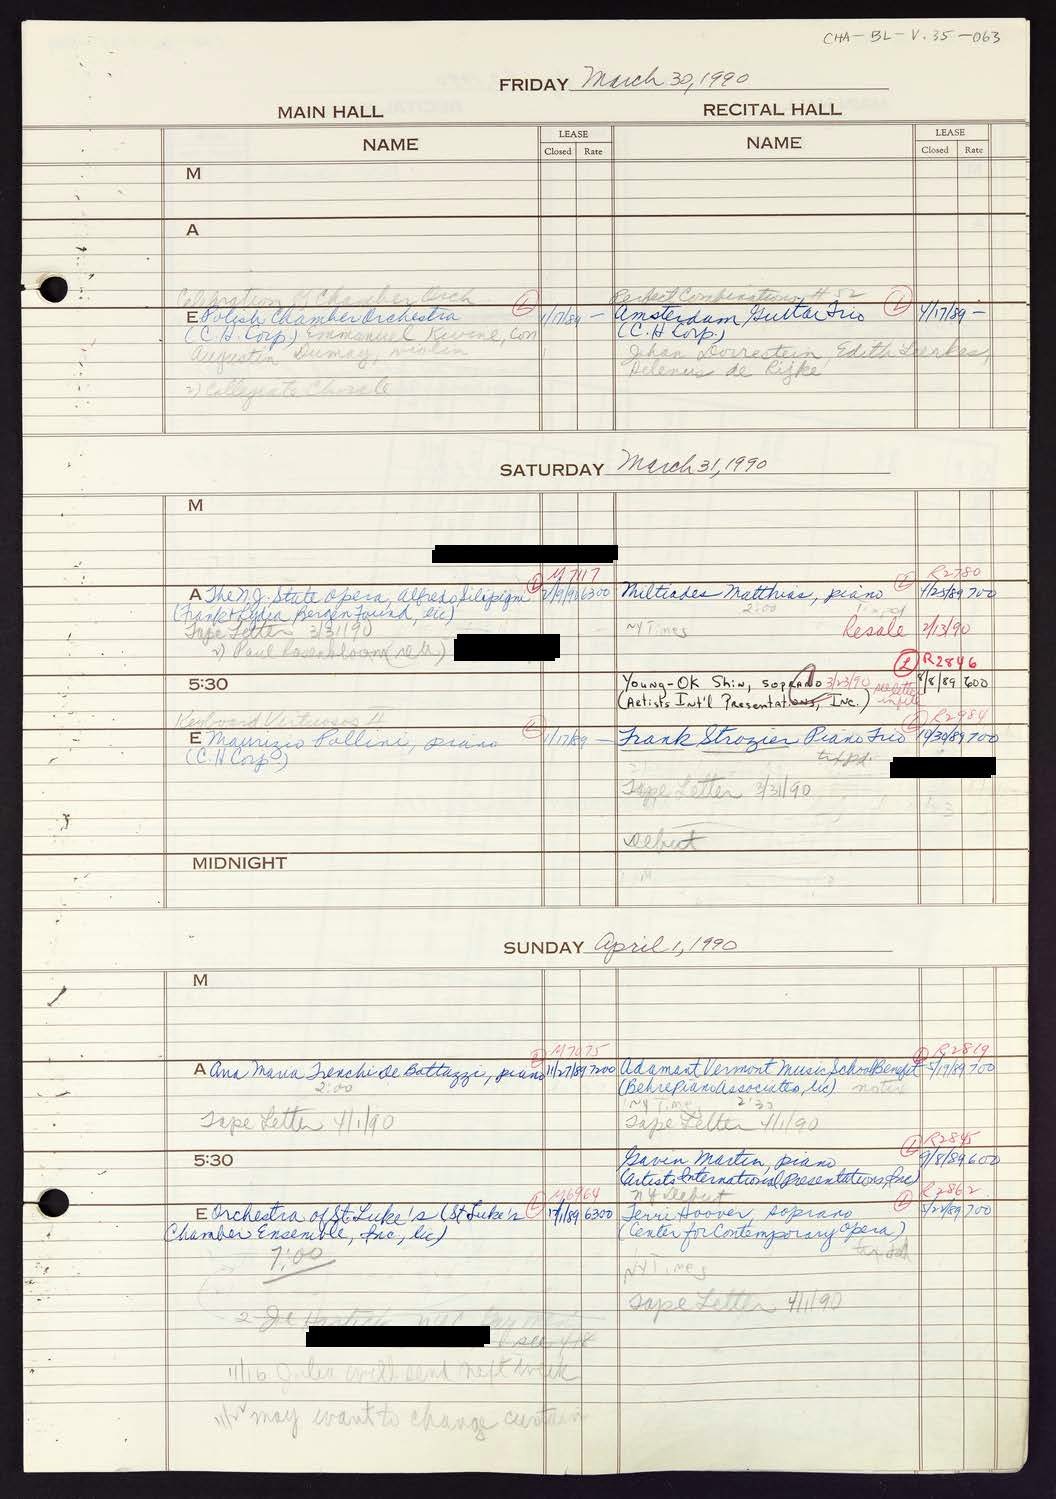 CHA-BL-V.35-063
FRIDAY March 30, 1990
MAIN HALL
RECITAL HALL
NAME
LEASE
Closed Rate
NAME
LEASE
Closed Rate
M
A
Celebration of Chamber Orch
Perfect Combinations # 52
E Polish Chamber Orchestra (L) 1/17/89 —
(C.H. Corp.) Emmanuel Krivine, con
Augustin Dumay, violin
2) Collegiate Chorale
Amsterdam Guitar Trio (L) 4/17/89 —
(C.H Corp.)
Johan Dorrestein, Edith Leerkes,
Helenus de Rijke
SATURDAY March 31, 1990
M
M7117
R2780
A The N.J. State Opera, Alfredo Silipigni (L) 6300
(Frank & Lydia Bergen Found, lic)
Tape Letter 3/31/90
2) Paul Rosenbloom
Miltiades Matthias, piano (L) 4/25/89 700
2:00
NY Times
Resale 2/13/90
(L) R2846
5:30
Young-Ok Shin, soprano 3/23/90 8/8/89 600
(Artists Int'l Presentations, Inc.) see letter in file
Keyboard Virtuosos II
R2984
E Maurizio Pollini, piano (L) 1/17/89 —
(C.H Corp)
Frank Strozier Piano Trio (L) 10/30/89 700
Tape Letter 3/31/90
Debut
MIDNIGHT
SUNDAY April 1, 1990
M
M7075
R2819
A Ana Maria Trenchi de Bottazzi, piano 11/27/89 7200
2:00
Tape Letter 4/1/90
Adamant Vermont Music School Benefit 5/19/89 700
(Behre Piano Associates, lic) notes
NY Times 2:30
Tape Letter 4/1/90
(L) R2845
5:30
Gavin Martin, piano 9/8/89 600
(Artists International Presentations, Inc)
NY Debut
M6964
R2862
E Orchestra of St. Luke's (St Luke's (L) 6300
Chamber Ensemble, Inc, lic)
7:00
Terri Hoover, soprano (L) 5/22/89 700
(Center for Contemporary Opera)
NY Times
Tape Letter 4/1/90
11/16 will send next week
may want to change curtain